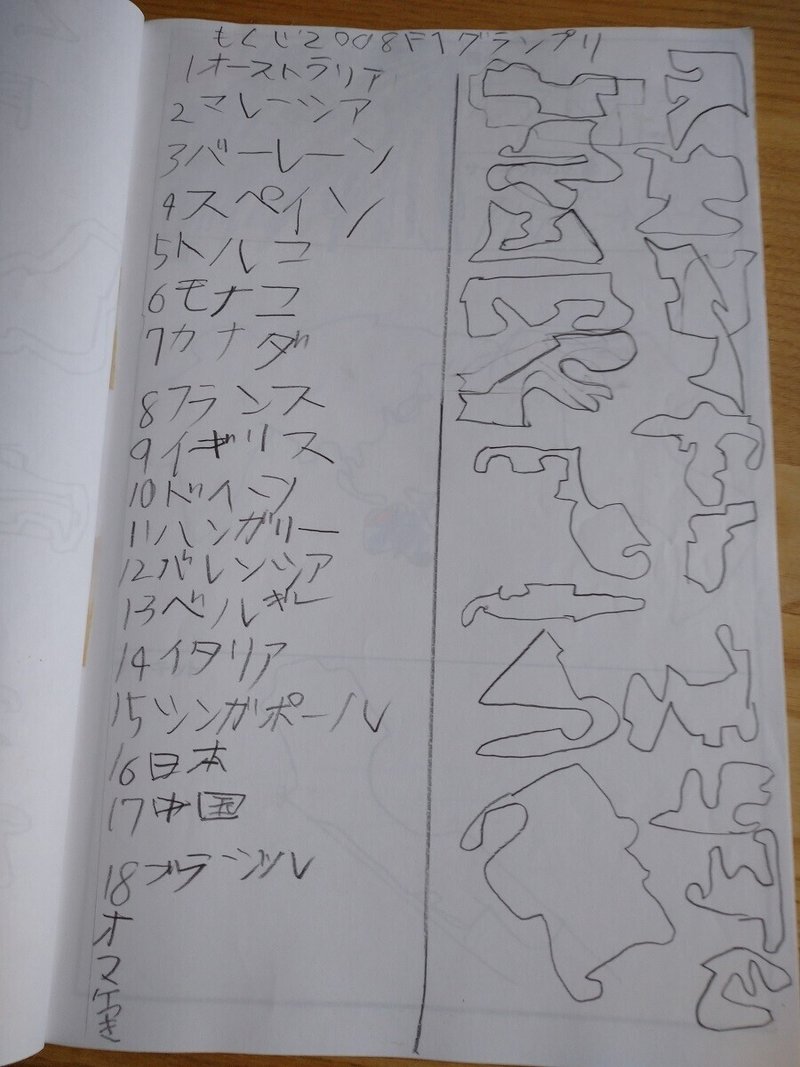 もくじ2008F1グランプリ
1オーストラリア
2マレーシア
3バーレーン
4スペイン
5トルコ
6モナコ
7カナダ
8フランス
9イギリス
10ドイツ
11ハンガリー
12バレンシア
13ベルギー
14イタリア
15シンガポール
16日本
17中国
18ブラージル
オマケつき